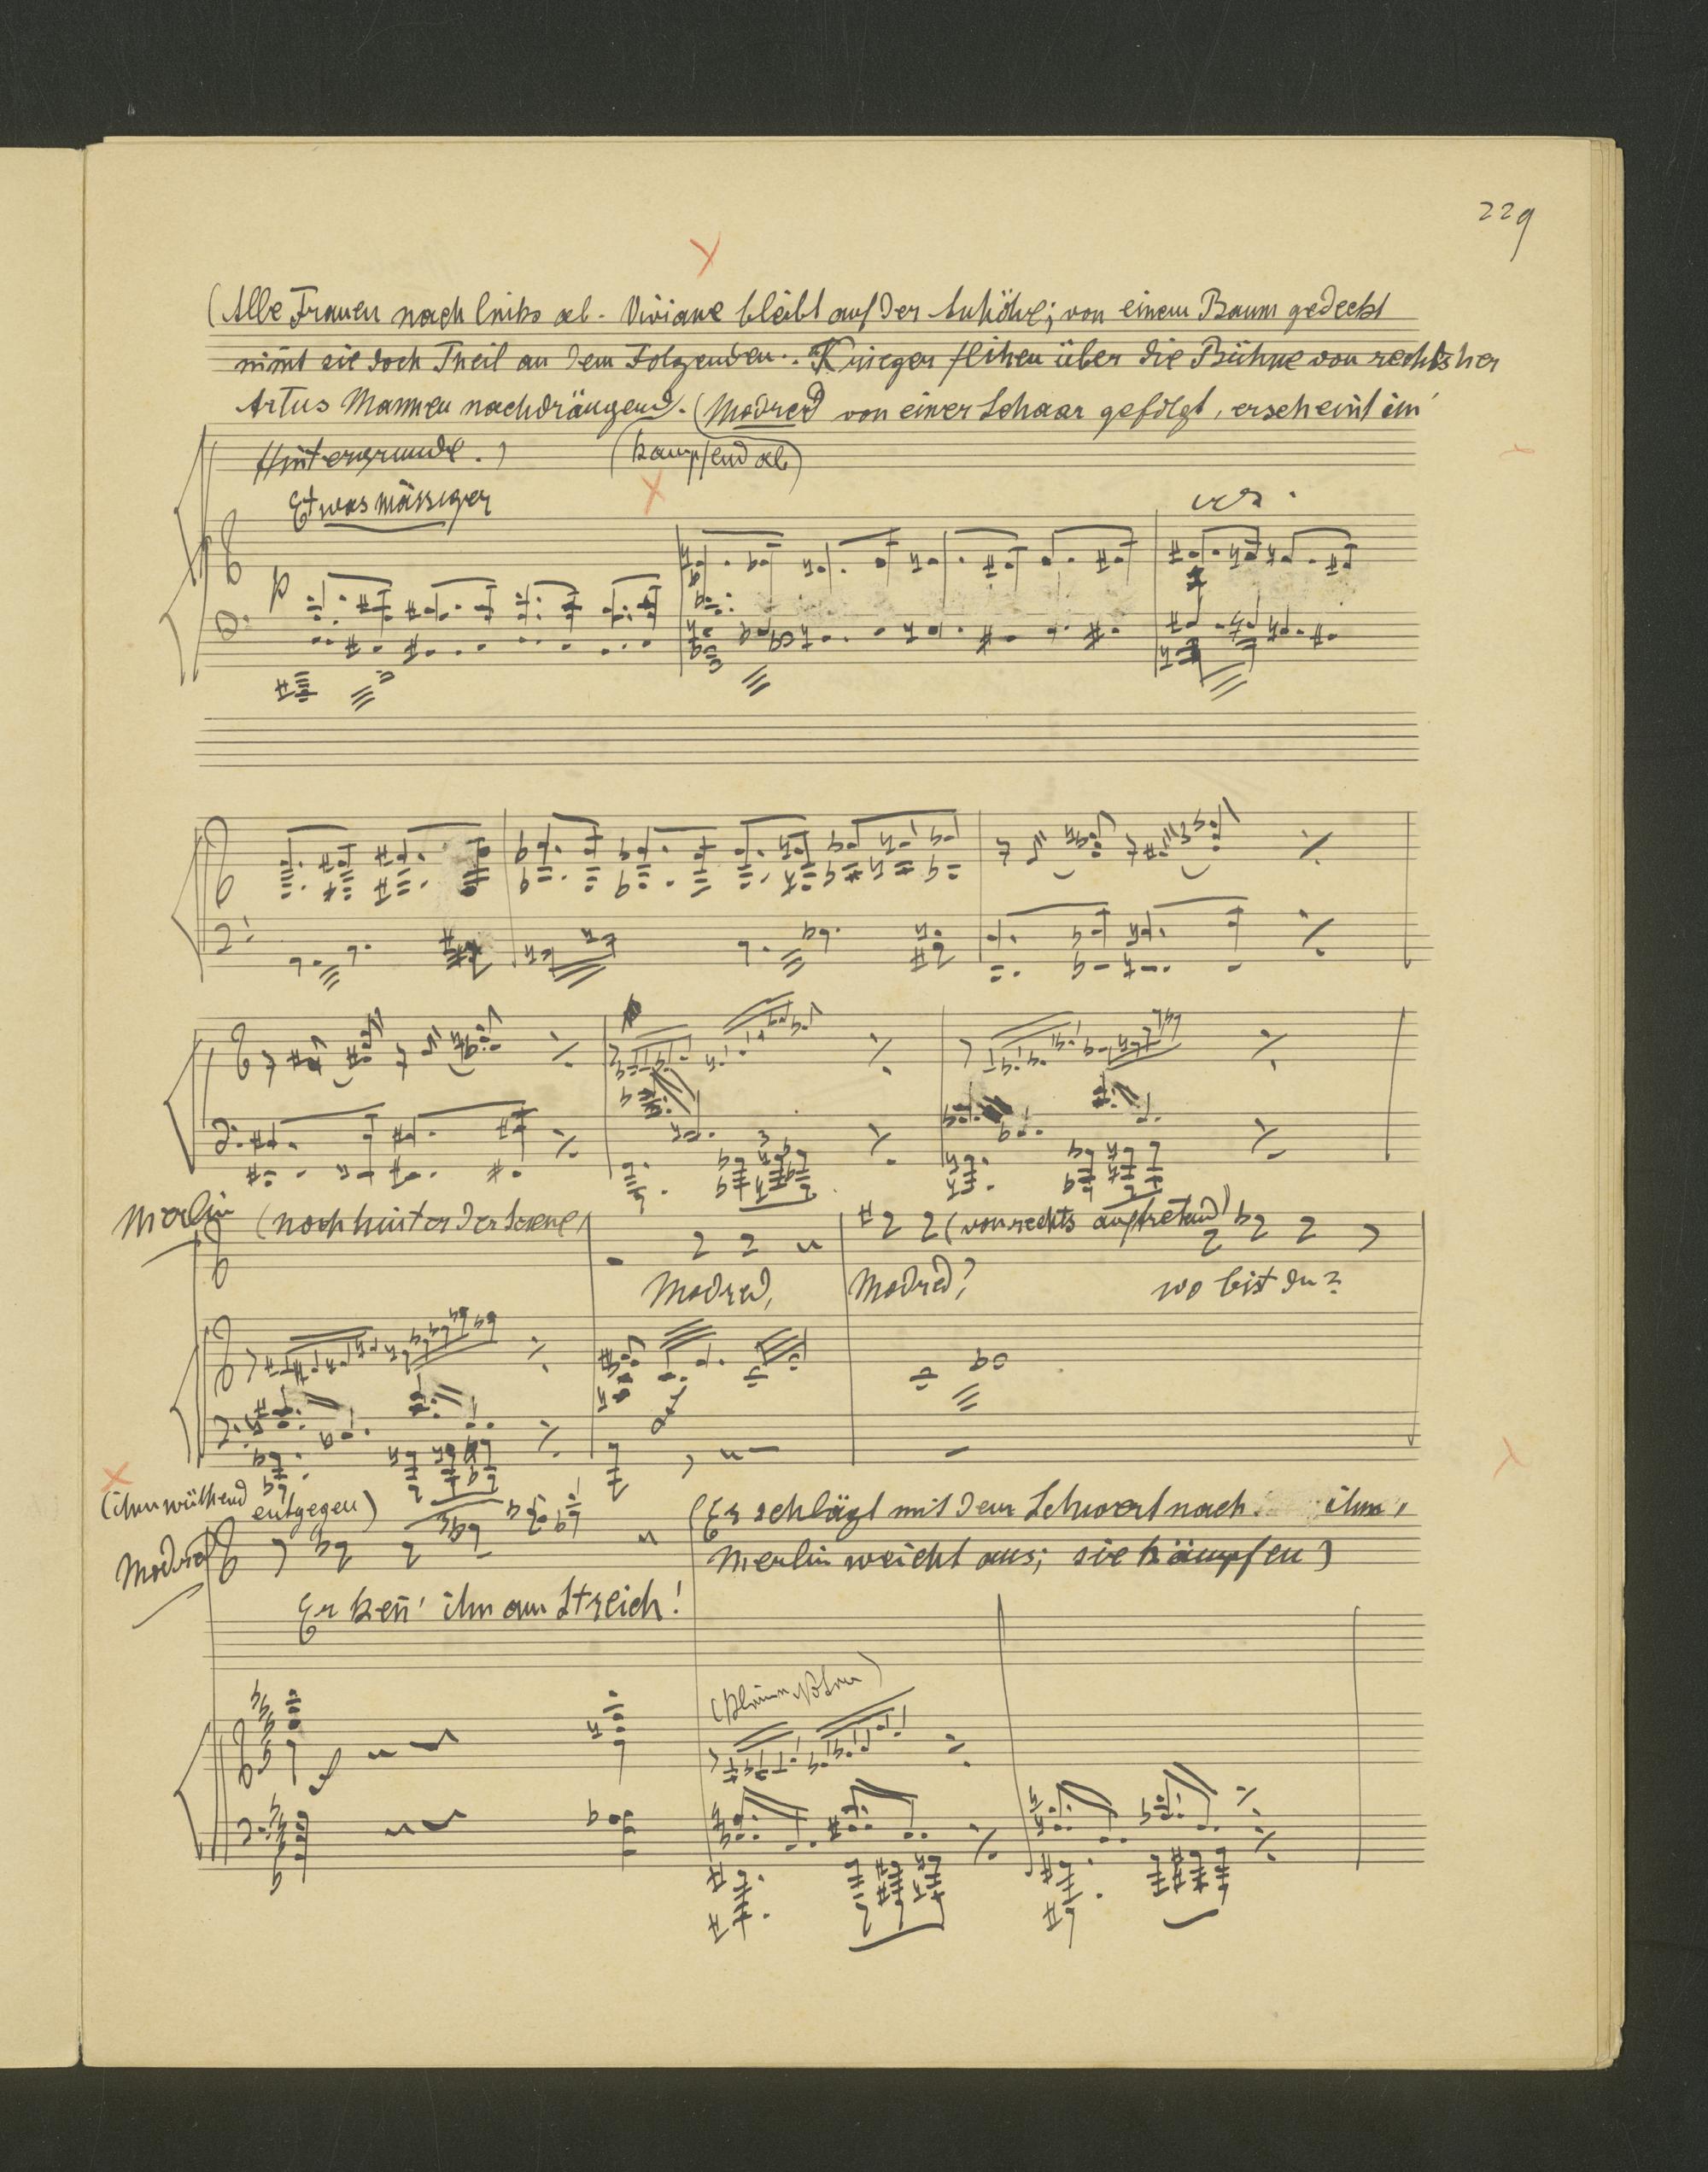 229
(Alle Frauen nach links ab. Viviane bleibt auf der Anhöhe; von einem Baum gedeckt
nim̄t sie doch Theil an dem Folgenden. Krieger flihen über die Bühne von rechts her
Artus Mannen nachdrängend. (Modred von einer Schaar gefolgt, erscheint im
Hintergrunde.) (kämpfend ab)
Etwas mässiger
p
cres.
Merlin (noch hinter der Scene)
(von rechts auftretend)
Modred, Modred? wo bist du?
(ihm wüthend entgegen)
(Er schlägt mit dem Schwert nach ihm,
Modred
Merlin weicht aus; sie kämpfen)
Er ken̄' ihn am Streich!
f